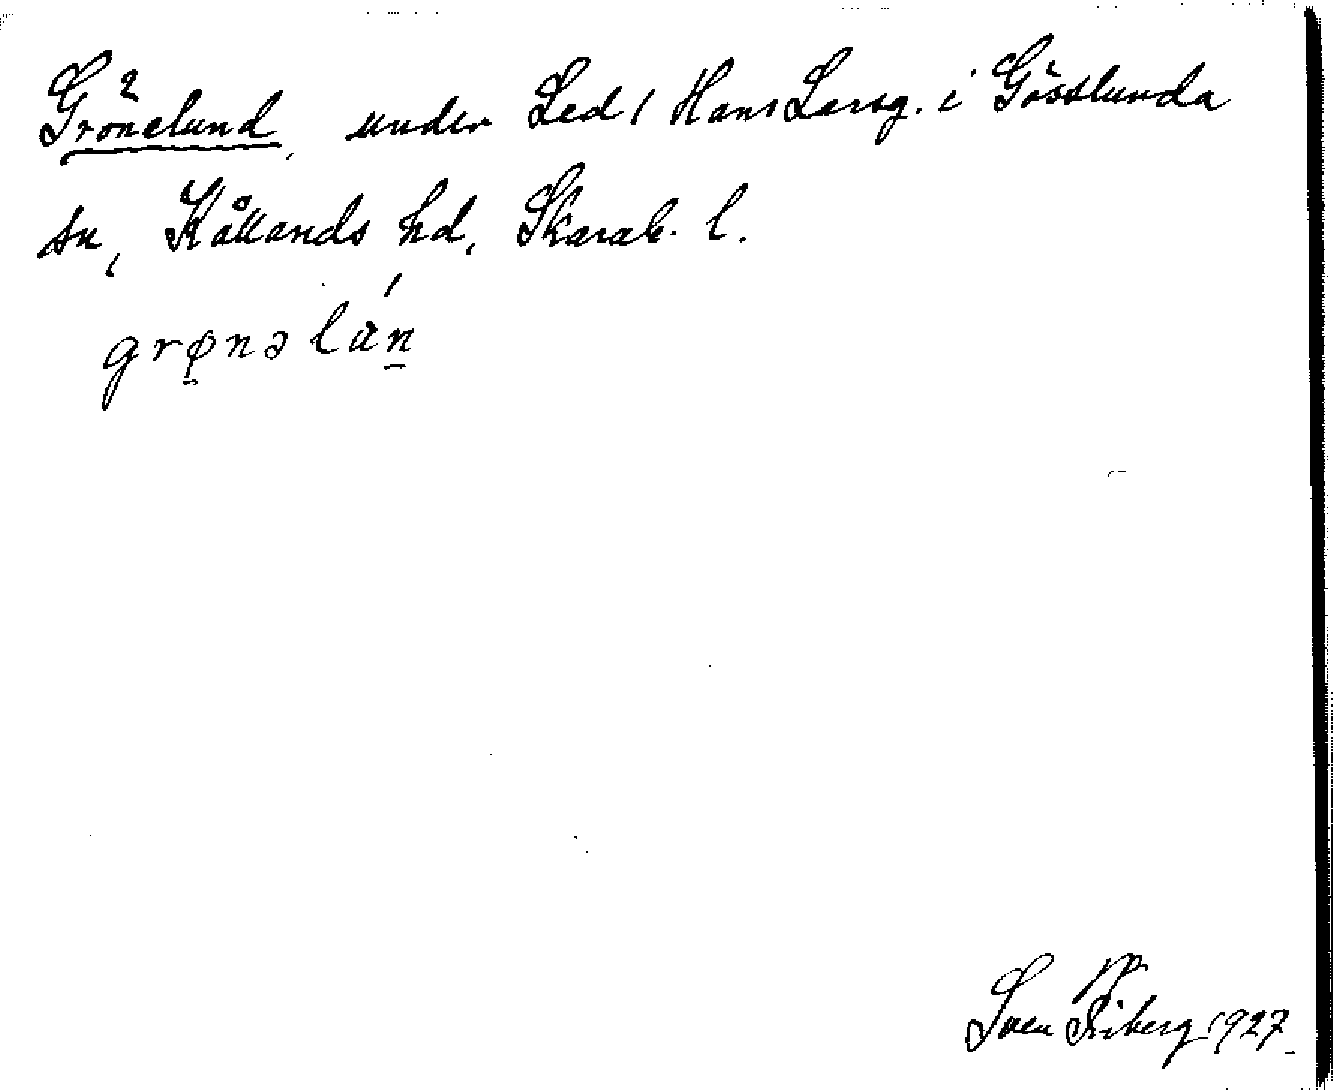 Grönelund, under Led / Hans Larsg. i Gösslunda
sn, Kållands hd, Skarab. l.
grø̱nəlán̠
Sven Friberg 1927.